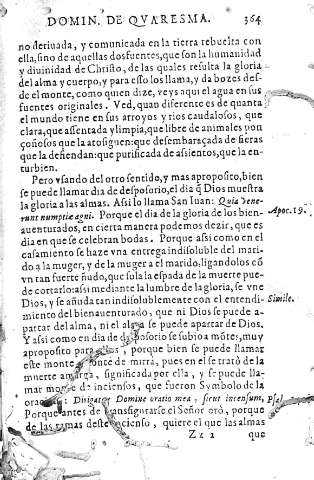 DOMIN. DE QVARESMA. 364
no deriuada, y comunicada en la tierra rebuelta con
ella, sino de aquellas dos fuentes, que son la humanidad
y diuinidad de Christo, de las quales resulta la gloria
del alma y cuerpo, y para esso los llama, y da bozes des-
de el monte, como quien dize, veys aqui el agua en sus
fuentes originales. Ved, quan diferente es de quanta
el mundo tiene en sus arroyos y rios caudalosos, que
clara, que assentada y limpia, que libre de animales pon
çoñosos que la atosiguen: que desembaraçada de fieras
que la defiendan: que purificada de assientos, que la en-
turbien.
Pero vsando del otro sentido, y mas aproposito, bien
se puede llamar dia de desposorio, el dia q̃ Dios muestra
la gloria a las almas. Assi lo llama San Iuan: Quia vene-
runt nuptiæ agni. Porque el dia de la gloria de los bien-
Apoc. 19.
auenturados, en cierta manera podemos dezir, que es
dia en que se celebran bodas. Porque assi como en el
casamiento se haze vna entrega indisoluble del mari-
do a la muger, y de la muger a el marido, ligandolos cõ
vn tan fuerte ñudo, que sola la espada de la muerte pue-
de cortarlo: assi mediante la lumbre de la gloria, se vne
Dios, y se añuda tan indisolublemente con el entendi-
Simile.
miento del bienauenturado, que ni Dios se puede a-
partar del alma, ni el alma se puede apartar de Dios.
Y assi como en dia de desposorio se subio a mõtes, muy
aproposito para, porque bien se puede llamar
este monte, monte de mirra, pues en el se tratò de la
muerte amarga, significada por ella, y se puede lla-
mar monte de inciensos, que fueron Symbolo de la
oracion: Dirigatur Domine oratio mea, sicut incensum,
Porque antes de transfigurarse el Señor orò, porque
de las ramas deste encienso, quiere el que las almas
Zz 2 que